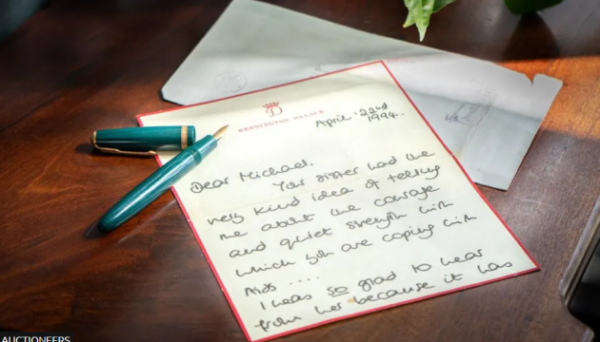 D
KENSINGTON PALACE
April 22nd
1994.
Dear Michael.
Your sister had the
very kind idea of telling
me about the courage
and quiet strength with
which you are coping with
Aids ....
I was so glad to hear
from her because it has
AUCTIONEERS